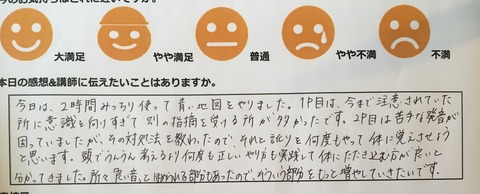 大満足 やや満足 普通 やや不満 不満
本日の感想&講師に伝えたいことはありますか。
今日は、2時間みっちり使って青い地図をやりました。1P目は、今まで注意されていた
所に意識を向けすぎて別の指摘を受ける所が多かったです。2P目は苦手な発音が
困っていましたが、その対処法を教わったので、それと訛りを何度もやって体に覚えさせよう
と思います。頭でうんうん考えるより何度も正しいやり方を実践して体にたたき込む方が良いと
分かってきました。所々良い音、とほめられる部分もあったので、そういう部分をもっと増やしていきたいです。